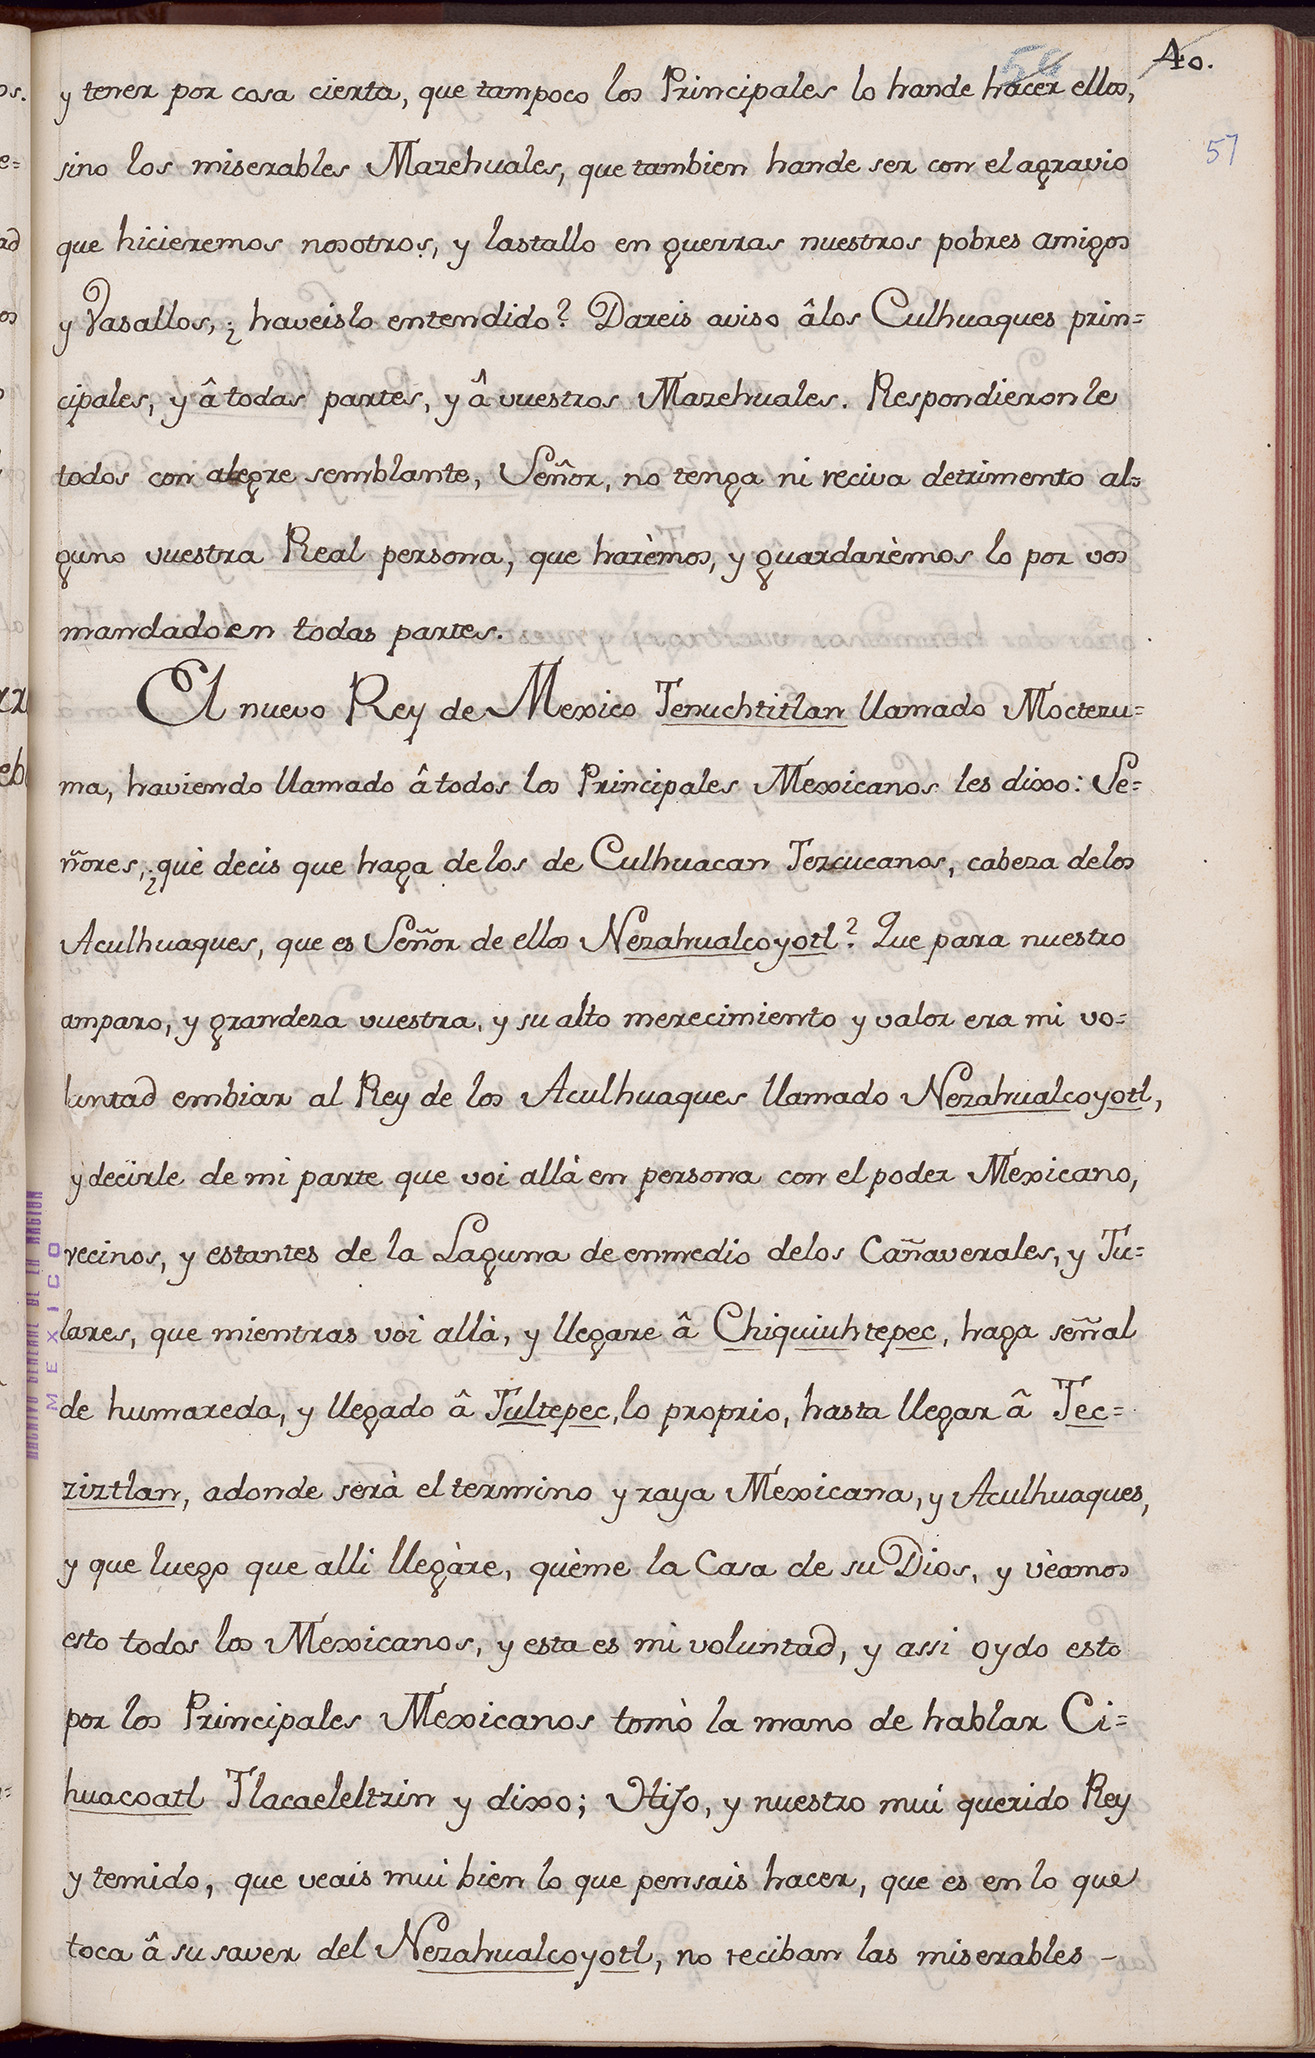 56 40.
57
y tener por cosa cierta, que tampoco los Principales lo hande hacer ellos,
sino los miserables Mazehuales, que tambien hande ser con el agravio
que hicieremos nosotros, y lastallo en guerras nuestros pobres amigos
y Vasallos, ¿haveislo entendido? Dareis aviso âlos Culhuaques prin=
cipales, y â todas partes, y â vuestros Mazehuales. Respondieronle
todos con alegre semblante, Señor, no tenga ni reciva detrimento al=
guno vuestra Real persona, que harèmos, y guardarèmos lo por vos
mandado en todas partes.
El nuevo Rey de Mexico Tenuchtitlan llamado Moctezu=
ma, haviendo llamado â todos los Principales Mexicanos les dixo: Se=
ñores, ¿què decis que haga de los de Culhuacan Tezcucanos, cabeza delos
Aculhuaques, que es Señor de ellos Nezahualcoyotl? Que para nuestro
amparo, y grandeza vuestra, y su alto merecimiento y valor era mi vo=
luntad embiar al Rey de los Aculhuaques llamado Nezahualcoyotl,
y decirle de mi parte que voi allà en persona con el poder Mexicano,
vecinos, y estantes de la Laguna de enmedio delos Cañaverales, y Tu=
lares, que mientras voi allà, y llegare â Chiquiuhtepec, haga señal
de humareda, y llegado â Tultepec, lo proprio, hasta llegar â Tec=
ziztlan, adonde serà el termino y raya Mexicana, y Aculhuaques,
y que luego que alli llegàre, quème la Casa de su Dios, y vèamos
esto todos los Mexicanos, y esta es mi voluntad, y assi oydo esto
por los Principales Mexicanos tomò la mano de hablar Ci=
huacoatl Tlacaeleltzin y dixo; Hijo, y nuestro mui querido Rey
y temido, que veais mui bien lo que pensais hacer, que es en lo que
toca â su saver del Nezahualcoyotl, no reciban las miserables -
ARCHIVO GENERAL DE LA NACION
MEXICO